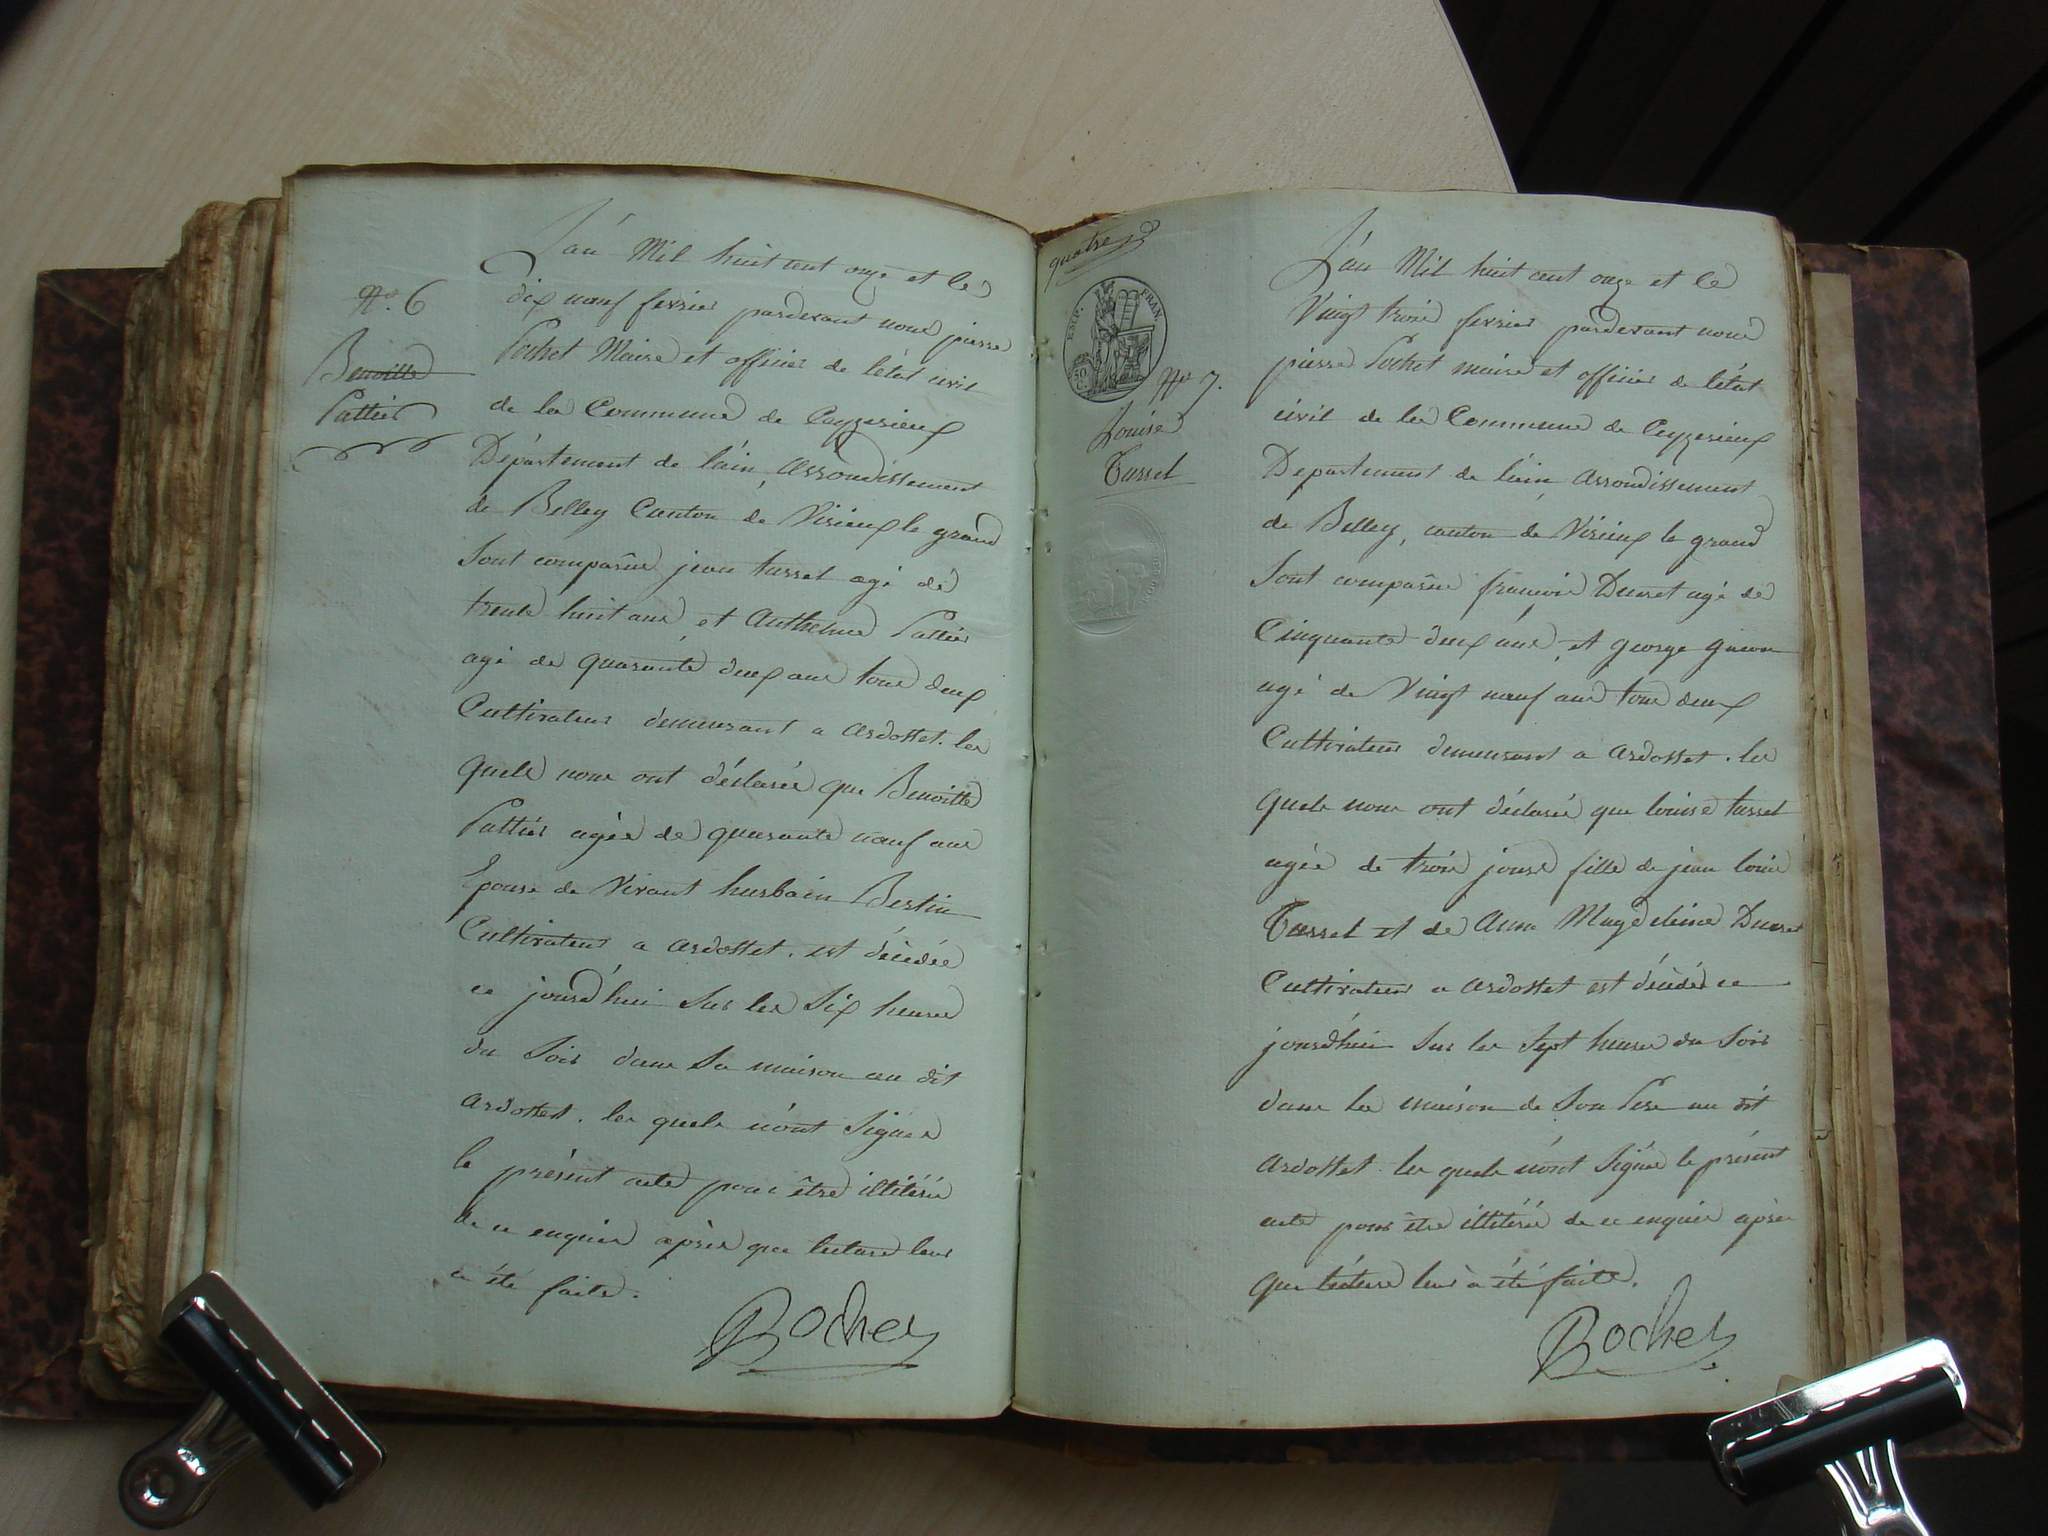 N.º 6
Benoitte
Pattier
L'an Mil huit cent onze et le
dix neuf fevrier pardevant nous pierre
Pochet Maire et officier de l'état civil
de la Commune de Ceyzerieux
Département de l'ain, arrondissement
de Belley Canton de Virieux le grand
Sont comparûs jean tursel agé de
trente huit ans, et Anthelme Pattier
agé de quarante deux ans tous deux
Cultivateurs demeurant a ardosset. les
quels nous ont déclarés que Benoitte
Pattier agée de quarante neuf ans
Epouse de Vivant hurbain Bertin
Cultivateur a ardosset. est décédée
ce jourd'hui Sur les Six heures
du Soir dans Sa maison au dit
ardosset. les quels n'ont Signés
le présent acte pour être illitérés
de ce enquis après que lecture leur
a été faite.
Pochet
quatre
EMP. FRAN.
50 C.
N.º 7.
Louise
Tursel
L'an Mil huit cent onze et le
Vingt trois fevrier pardevant nous
pierre Pochet maire et officier de l'état
civil de la Commune de Ceyzerieux
Departement de l'ain, arrondissement
de Belley, canton de Virieux le grand
Sont comparûs françois Ducret agé de
Cinquante deux ans, et george
agé de Vingt neuf ans tous deux
Cultivateurs demeurant a ardosset. les
quels nous ont déclarés que louise tursel
agée de trois jours fille de jean louis
Tursel et de Anne Magdeleine Ducret
Cultivateurs a ardosset est décédé ce
jourd'hui Sur les Sept heures du Soir
dans la maison de Son Pere au dit
ardosset. les quels n'ont Signés le présent
acte pour être illitérés de ce enquis après
que lecture leur à été faite.
Pochet